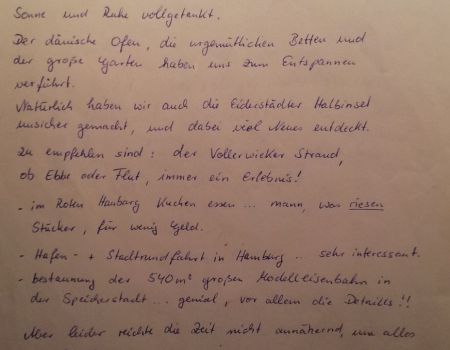 Sonne und Ruhe vollgetankt.
Der dänische Ofen, die urgemütlichen Betten und
der große Garten haben uns zum Entspannen
verführt.
Natürlich haben wir auch die Eiderstädter Halbinsel
unsicher gemacht, und dabei viel Neues entdeckt.
Zu empfehlen sind: der Vollerwieker Strand,
ob Ebbe oder Flut, immer ein Erlebnis!
- im Roten Haubarg Kuchen essen... mann, was riesen
Stücker, für wenig Geld.
- Hafen- + Stadtrundfahrt in Hamburg .. sehr interessant.
- bestaunung der 540m² großen Modelleisenbahn in
der Speicherstadt ... genial, vor allem die Details!!
Aber leider reichte die Zeit nicht annähernd, um alles